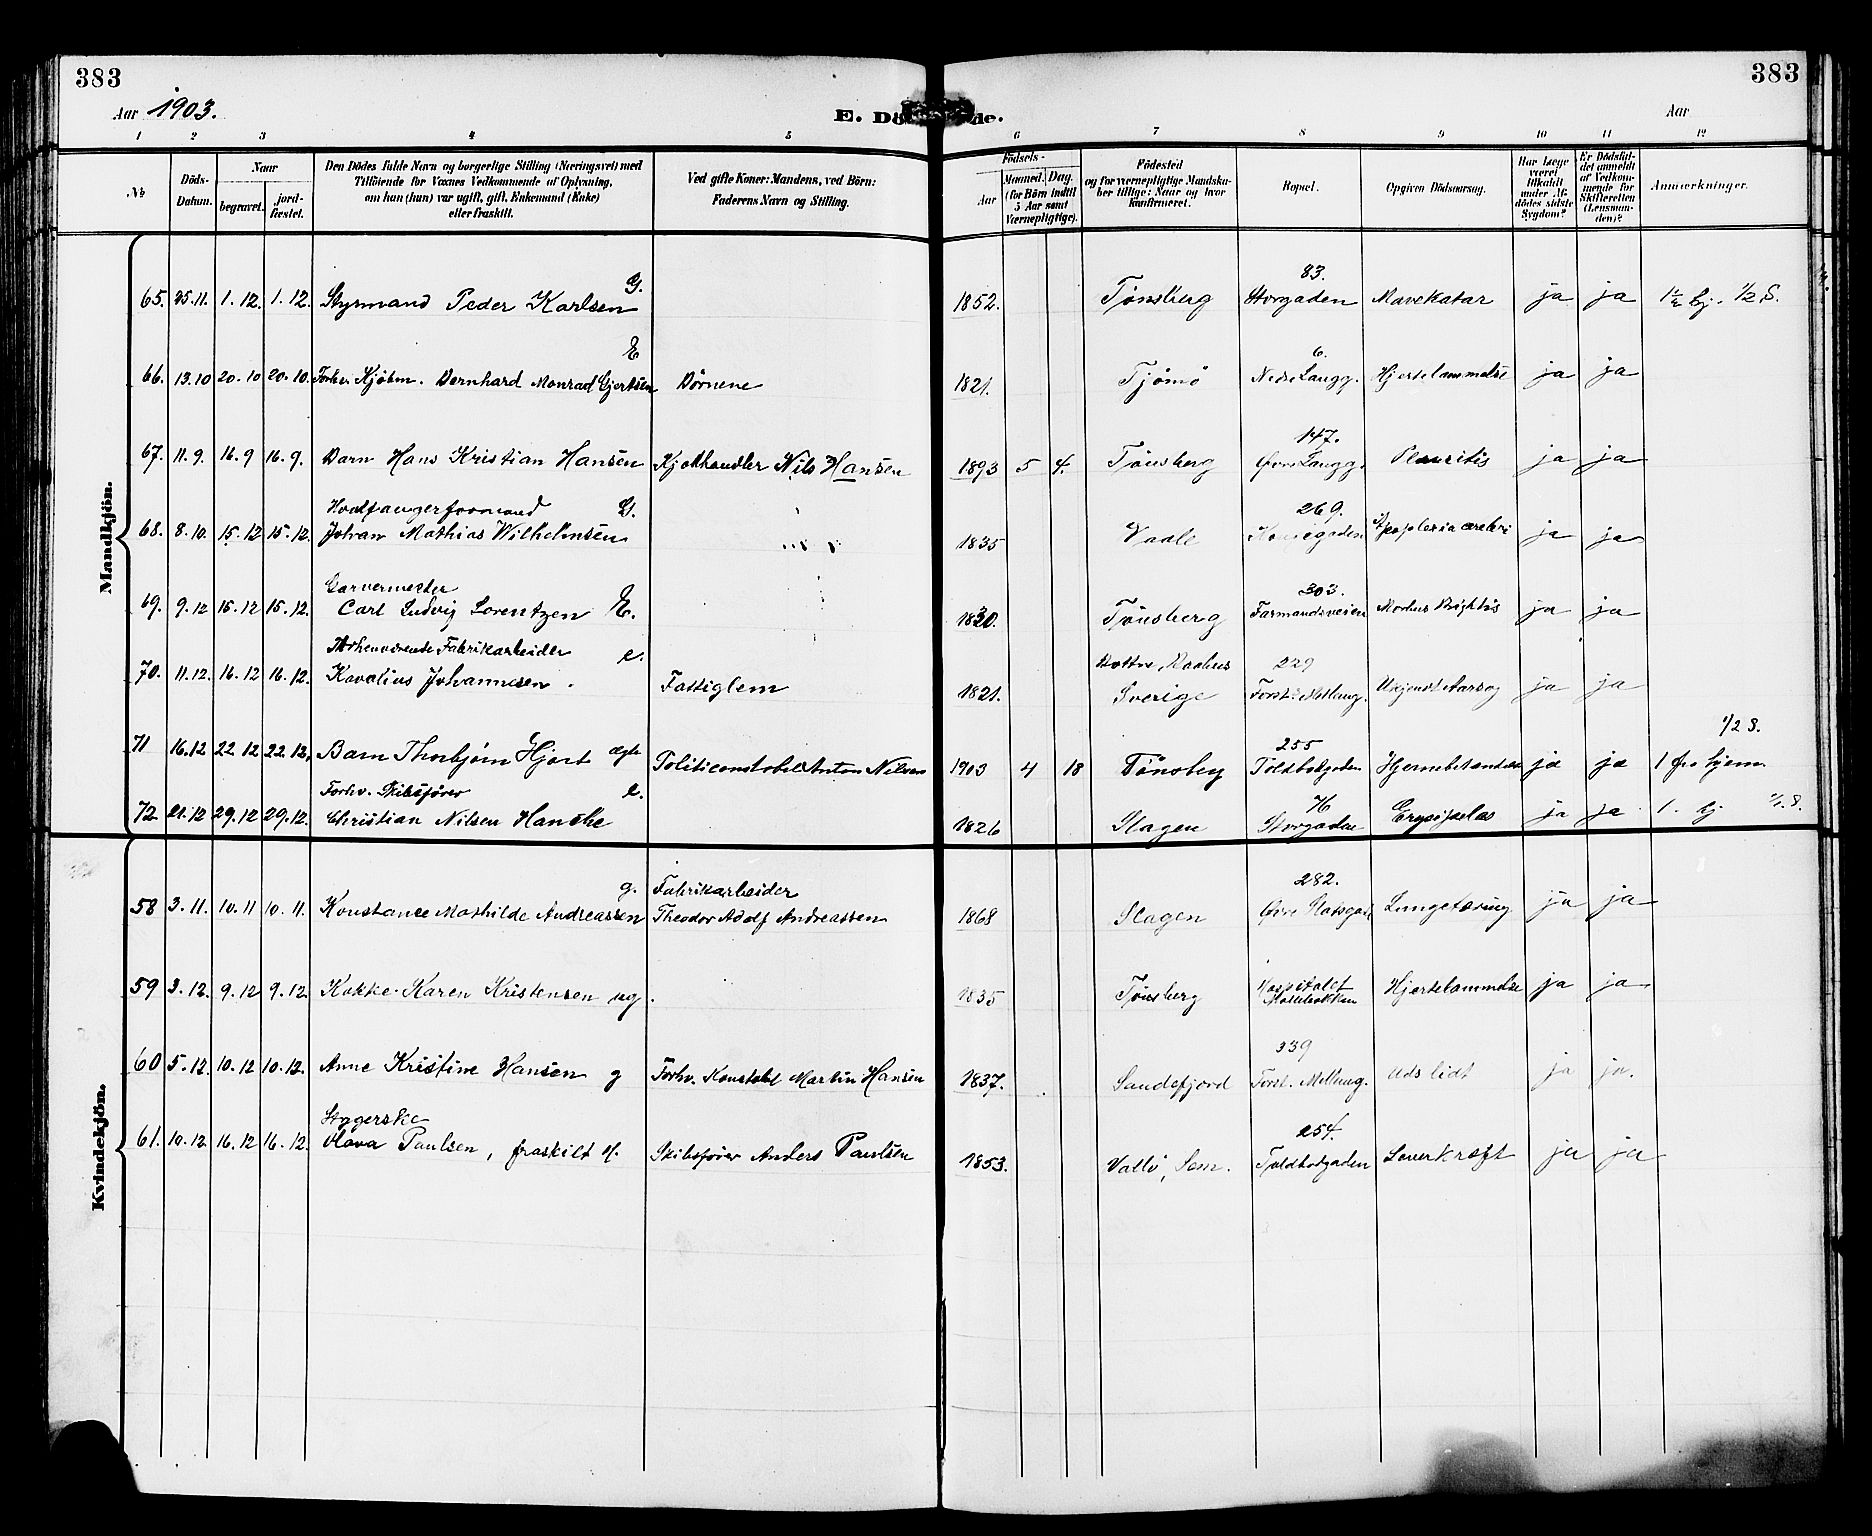 383
383
Aar 1903.
E. Dö de.
Aar
1 2 3 4 5 6 7 8 9 10 11 12
No
Döds-Datum.
Naar
begravet.
jord-fæstet.
Den Dödes fulde Navn og borgerlige Stilling (Næringsvei) med
Tilföiende for Voxnes Vedkommende af Oplysning,
om han (hun) var ugift, gift, Enkemand (Enke)
eller fraskilt.
Ved gifte Koner: Mandens, ved Börn:
Faderens Navn og Stilling.
Födsels-
Aar
Maaned.
Dag.
(for Börn indtil
5 Aar samt
Værnepligtige).
Födested
og for værnepligtige Mandska-
ber tillige: Naar og hvor
konfirmeret.
Bopæl.
Opgiven Dödsaarsag.
Har Læge
været
tilkaldt
under Af-
dödes sidste
Sygdom?
Er Dödsfal-
det anmeldt
af Vedkom-
mende for
Skifteretten
(Lensman-
den)?
Anmærkninger.
Mandkjön.
65. 25.11. 1.12. 1.12. Styrmand Peder Karlsen G. 1852. Tønsberg 83. Storgaden Mavekatar ja ja 1 1/2 hj. 1/2 S.
66. 13.10 20.10 20.10. Forhv. Kjøbm. Bernhard Monrad Gjertsen E Børnene 1821. Tjømø 6. Nedre Langg. Hjertelammelse ja ja
67. 11.9. 16.9 16.9. Barn Hans Kristian Hansen Kjødhandler Nils Hansen 1893 5 4. Tønsberg 147. Øvre Langg. Pleuritis ja ja
Hvalfangerformand G.
68. 8.10. 15.12 15.12. Johan Mathias Wilhelmsen 1835 Vaale 269. Kongegaden Apoplexia cerebri ja ja
Garvermester
69. 9.12 15.12 15.12. Carl Ludvig Lorentzen E. 1820. Tønsberg 303. Farmandsveien Morbus Brightis ja ja
Forhenværende Fabrikarbeider e.
70. 11.12. 16.12 16.12. Kavalius Johannesen. Fattiglem 1821. Bottne, Baahus Sverige 229 Forst. Mellemg. Ukjendt Aarsag ja ja
71 16.12 22.12 22.12. Barn Thorbjørn Hjort ægte Politiconstabel Anton Nilsen 1903 4 18 Tønsberg 255 Toldbodgaden Hjernebetændelse ja ja 1 fra hjem 1/2 S.
Forhv. Skibsfører e.
72 21.12 29.12 29.12. Christian Nilsen Hanche 1826 Slagen 76 Storgaden Erysipelas ja ja 1. hj
Kvindekjön.
g. Fabrikarbeider
58 3.11. 10.11 10.11. Konstance Mathilde Andreassen Theodor Adolf Andreassen 1868 Slagen 282. Øvre Slotsgad Lungetæring ja ja
59 3.12. 9.12 9.12. Kokke Karen Kristensen ug. 1835 Tønsberg Hospitalet Hjertelammelse ja ja
60 5.12. 10.12 10.12. Anne Kristine Hansen g Forhv. Konstabel Martin Hansen 1837. Sandefjord 339 Forst. Mellemg. Udslidt ja ja.
Strygerske
61. 10.12. 16.12 16.12. Olava Paulsen, fraskilt f. Skibsfører Anders Paulsen 1853. Vallø, Sem. 254. Toldbodgaden Leverkræft ja ja